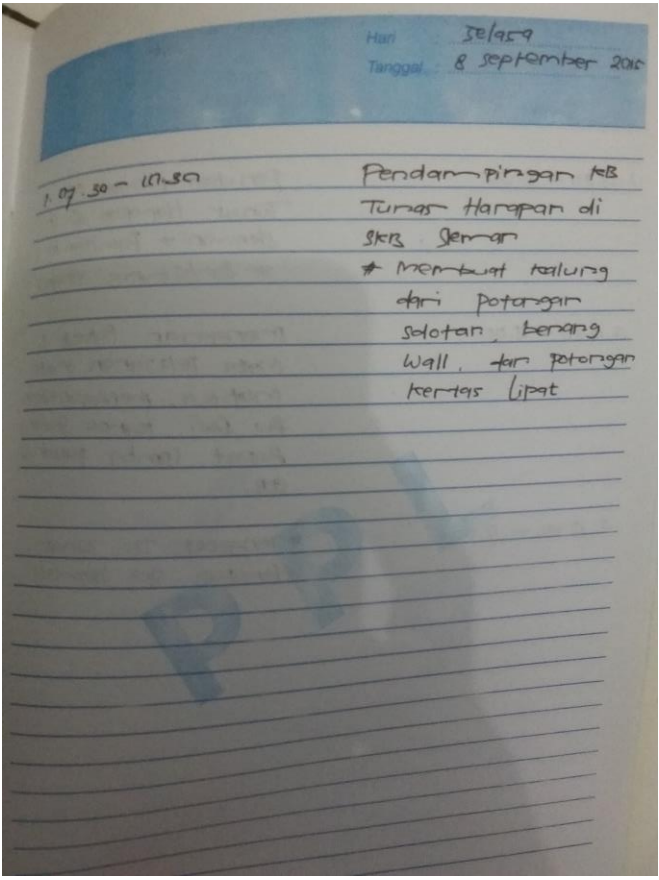 Hari : Selasa
Tanggal : 8 September 2015
1. 07.30 - 10.30 Pendampingan KB
Tunas Harapan di
SKB Sleman
* Membuat kalung
dari potongan
sedotan, benang
Wall, dan potongan
kertas lipat
PPL